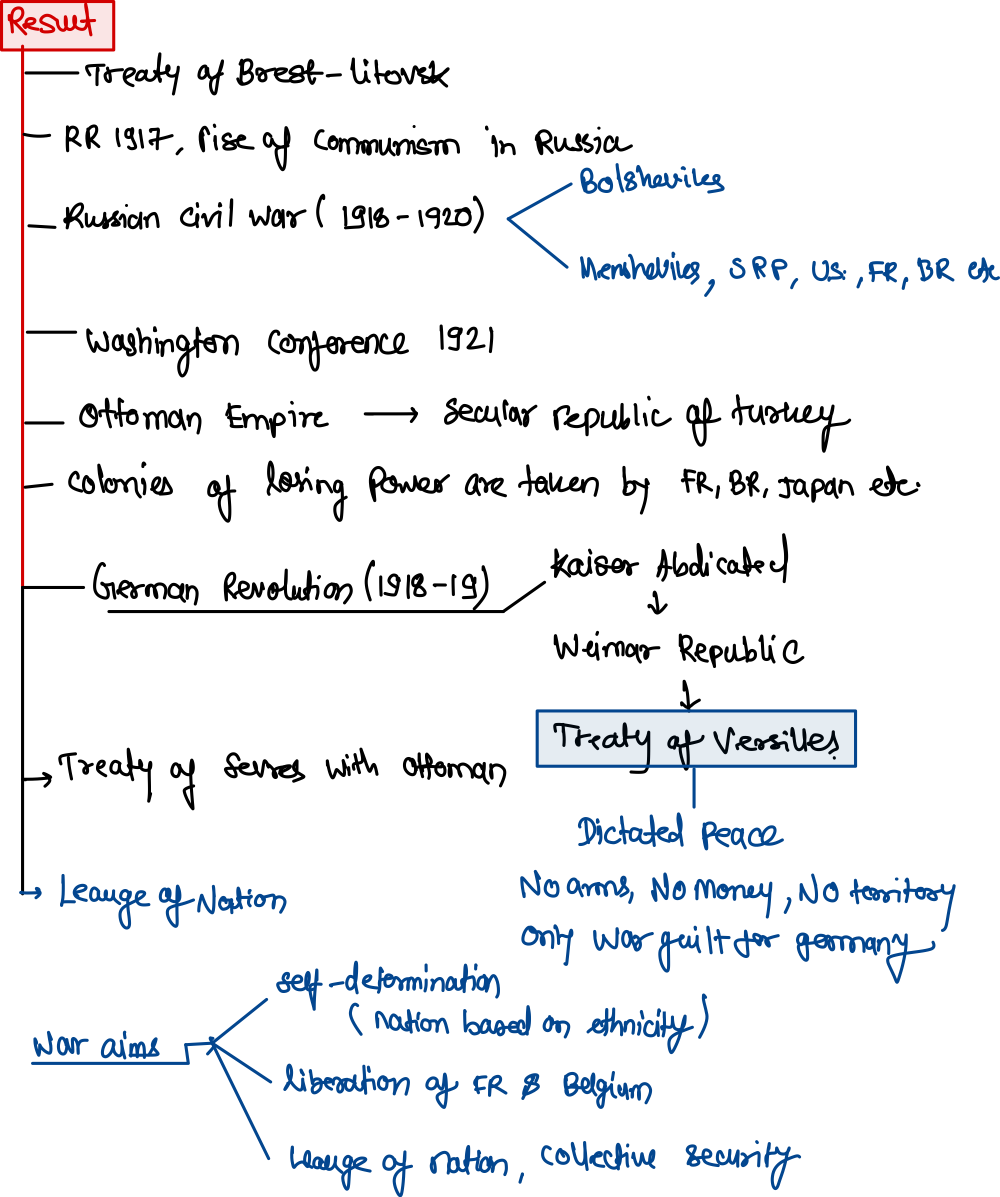 Result
Treaty of Brest-Litovsk
RR 1917, rise of Communism in Russia
Bolsheviks
Russian Civil War (1918-1920)
Mensheviks, SRP, US, FR, BR etc
Washington Conference 1921
Ottoman Empire → Secular republic of turkey
Colonies of losing Power are taken by FR, BR, Japan etc.
German Revolution (1918-19)
Kaiser Abdicated
↓
Weimar Republic
↓
Treaty of Versilles
Treaty of Serres with Ottoman
Dictated Peace
Leauge of Nation
No arms, No Money, No territory
only War guilt for germany
self-determination
(nation based on ethnicity)
War aims
liberation of FR & Belgium
Leauge of nation, collective security